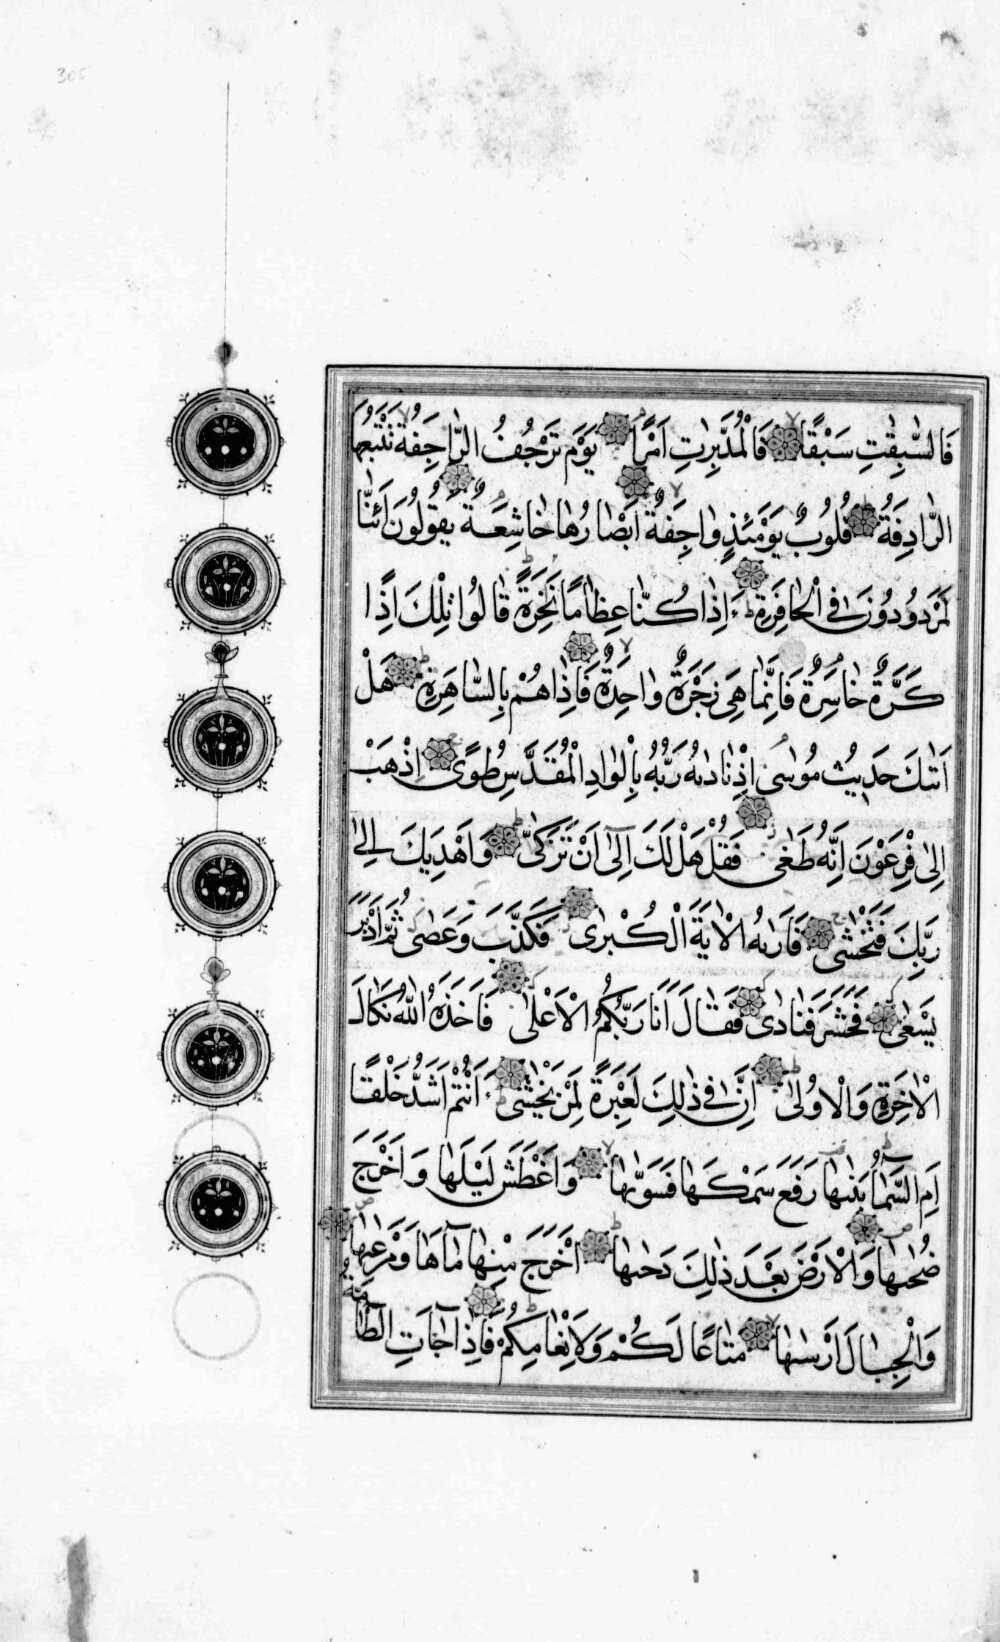 305
فَالسّٰبِقٰتِ سَبْقًا فَالْمُدَبِّرٰتِ اَمْرًا يَوْمَ تَرْجُفُ الرَّاجِفَةُ تَتْبَعُهَا
الرَّادِفَةُ قُلُوبٌ يَوْمَئِذٍ وَاجِفَةٌ اَبْصَارُهَا خَاشِعَةٌ يَقُولُونَ اَئِنَّا
لَمَرْدُودُونَ فِى الْحَافِرَةِ ءَاِذَا كُنَّا عِظَامًا نَخِرَةً قَالُوا تِلْكَ اِذًا
كَرَّةٌ خَاسِرَةٌ فَاِنَّمَا هِىَ زَجْرَةٌ وَاحِدَةٌ فَاِذَا هُمْ بِالسَّاهِرَةِ هَلْ
اَتٰىكَ حَدِيثُ مُوسٰى اِذْ نَادٰيهُ رَبُّهُ بِالْوَادِ الْمُقَدَّسِ طُوًى اِذْهَبْ
اِلٰى فِرْعَوْنَ اِنَّهُ طَغٰى فَقُلْ هَلْ لَكَ اِلٰٓى اَنْ تَزَكّٰى وَاَهْدِيَكَ اِلٰى
رَبِّكَ فَتَخْشٰى فَاَرٰيهُ الْاٰيَةَ الْكُبْرٰى فَكَذَّبَ وَعَصٰى ثُمَّ اَدْبَرَ
يَسْعٰى فَحَشَرَ فَنَادٰى فَقَالَ اَنَا رَبُّكُمُ الْاَعْلٰى فَاَخَذَهُ اللّٰهُ نَكَالَ
الْاٰخِرَةِ وَالْاُولٰى اِنَّ فِى ذٰلِكَ لَعِبْرَةً لِمَنْ يَخْشٰى ءَاَنْتُمْ اَشَدُّ خَلْقًا
اَمِ السَّمَاءُ بَنٰيهَا رَفَعَ سَمْكَهَا فَسَوّٰيهَا وَاَغْطَشَ لَيْلَهَا وَاَخْرَجَ
ضُحٰيهَا وَالْاَرْضَ بَعْدَ ذٰلِكَ دَحٰيهَا اَخْرَجَ مِنْهَا مَاءَهَا وَمَرْعٰيهَا
وَالْجِبَالَ اَرْسٰيهَا مَتَاعًا لَكُمْ وَلِاَنْعَامِكُمْ فَاِذَا جَاءَتِ الطَّامَّةُ